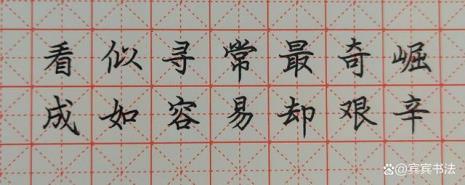 看似寻常最奇崛
成如容易却艰辛
宾宾书法